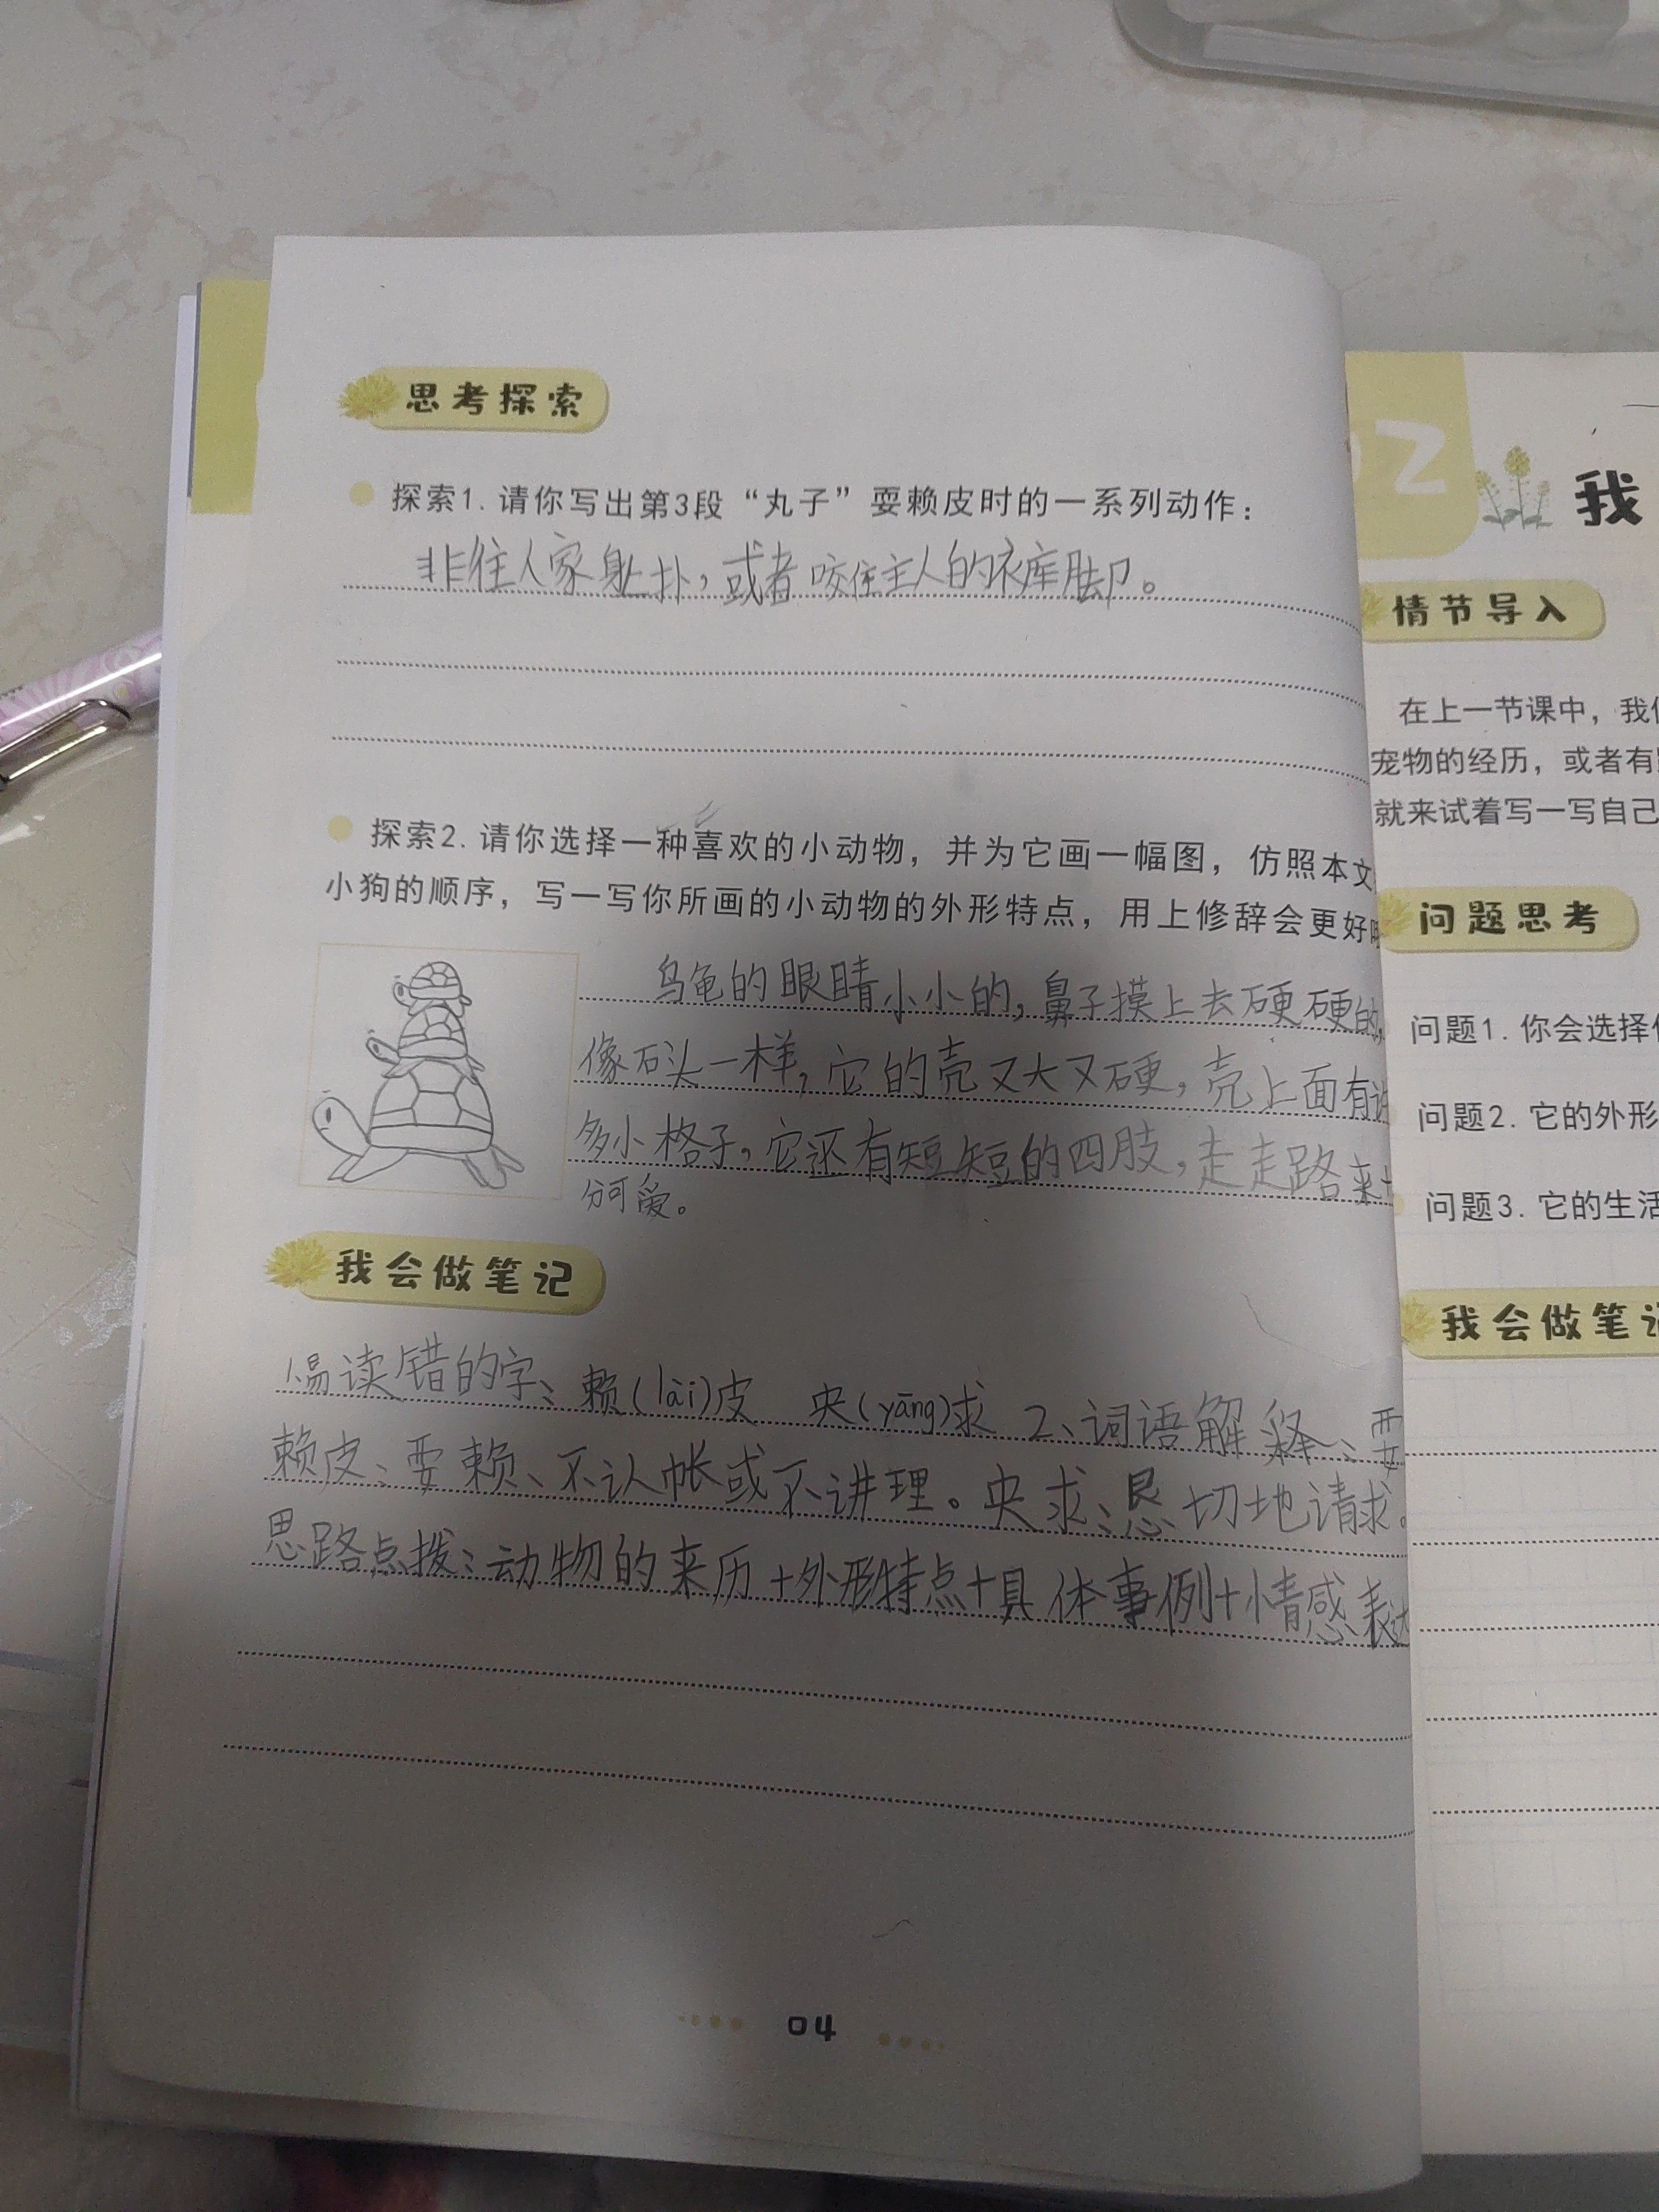 思考探索
探索1.请你写出第3段“丸子”耍赖皮时的一系列动作：
非往人家身上扑，或者咬住主人的衣库脚。
探索2.请你选择一种喜欢的小动物，并为它画一幅图，仿照本文
小狗的顺序，写一写你所画的小动物的外形特点，用上修辞会更好
乌龟的眼睛小小的，鼻子摸上去硬硬的，
像石头一样，它的壳又大又硬，壳上面有许
多小格子，它还有短短的四肢，走走路来十
分可爱。
我会做笔记
1、易读错的字：赖(lài)皮 央(yāng)求 2、词语解释：耍
赖皮：耍赖、不认帐或不讲理。央求：恳切地请求。
思路点拨：动物的来历+外形特点+具体事例+情感表达
04
02
我
情节导入
在上一节课中，我们
宠物的经历，或者有
就来试着写一写自己
问题思考
问题1.你会选择
问题2.它的外形
问题3.它的生活
我会做笔记